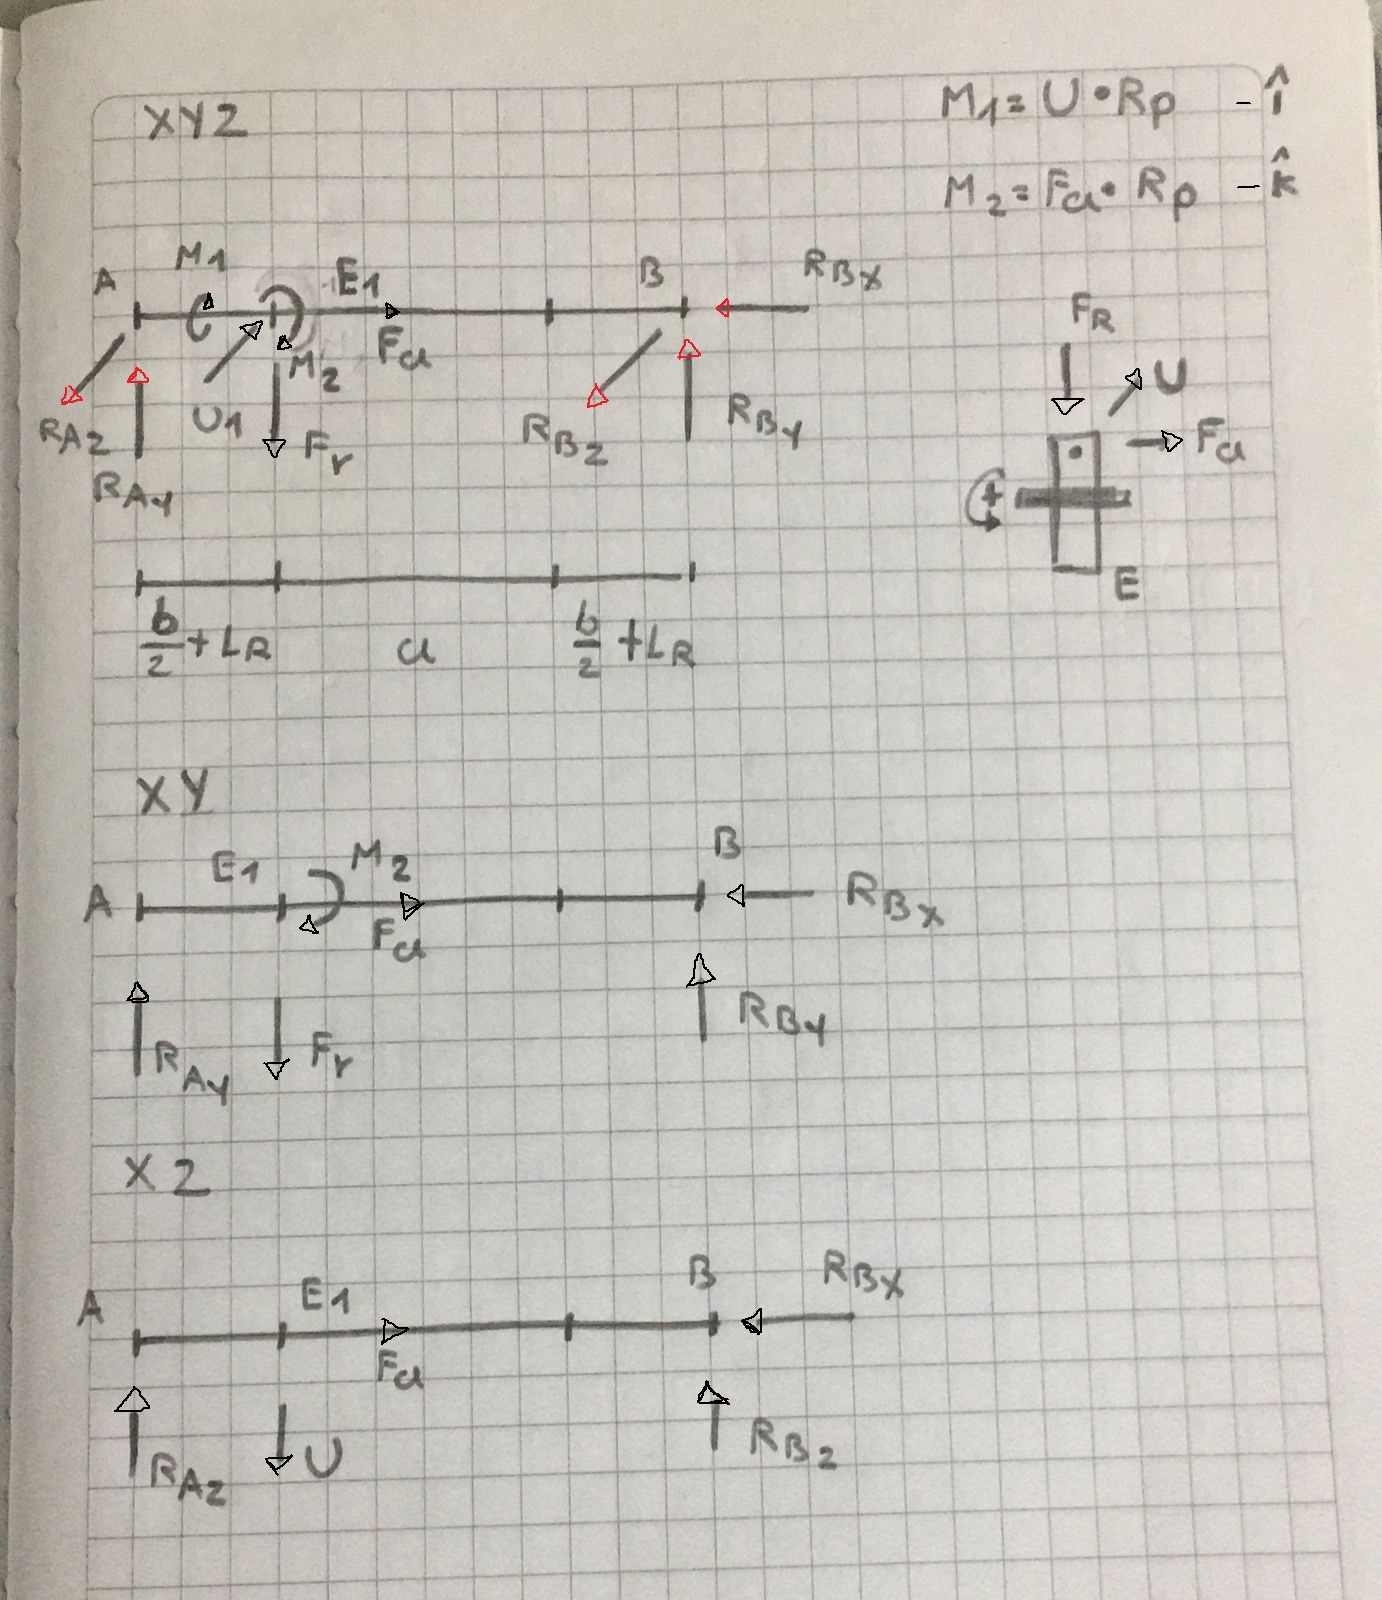 XYZ
M1 = U • Rp -î
M2 = Fa • Rp -k̂
A M1 E1 B RBX
M2 Fa
RAZ U1 Fr RBZ RBY
RAY
FR
U
Fa
+
E
b/2 + LR a b/2 + LR
XY
A E1 M2 B RBX
Fa
RAY Fr RBY
XZ
A E1 B RBX
Fa
RAZ U RBZ